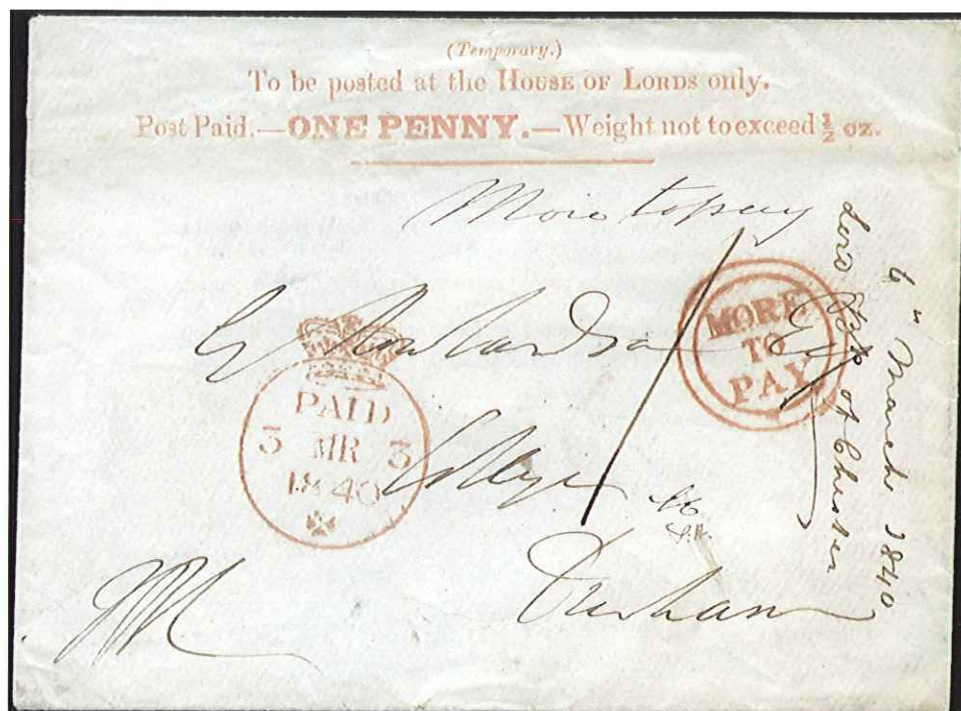 (Temporary.)
To be posted at the HOUSE OF LORDS only.
Post Paid.—ONE PENNY.—Weight not to exceed ½ oz.
More to pay
G
College
Durham
PAID
3 MR 3
1840
MORE
TO
PAY
6" March 1840
Lord of Chester